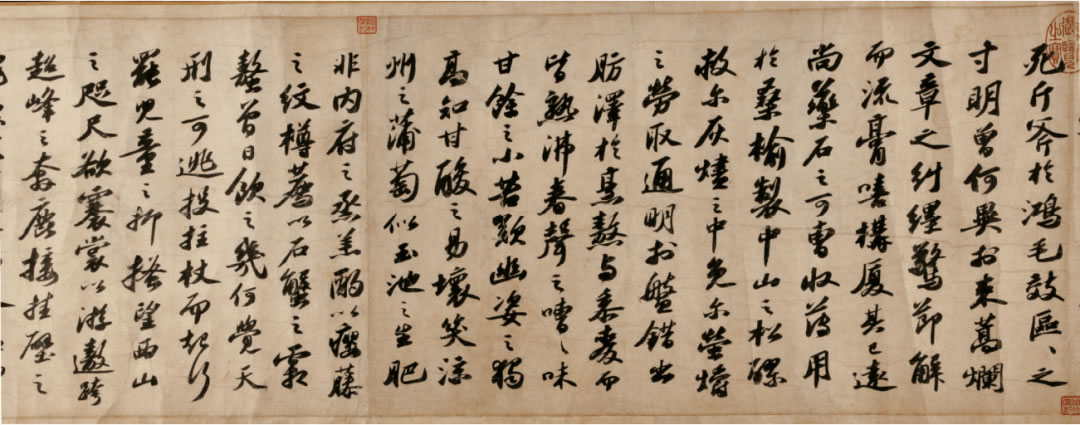 死斤斧於鴻毛效區〻之
寸明曾何異於束蒿爛
文章之糾纏驚節解
而流膏嘻構廈其已遠
尚藥石之可曹收薄用
於桑榆製中山之松醪
救尔灰燼之中免尔螢爝
之勞取通明於盤錯出
肪澤於烹熬与黍麥而
皆熟沸舂聲之嘈〻味
甘餘之小苦歎幽姿之獨
高知甘酸之易壞笑涼
州之蒲萄似玉池之生肥
非内府之烝羔酌以癭藤
之紋樽薦以石蟹之霜
螯曾日飲之幾何覺天
刑之可逃投拄杖而起行
罷兒童之抑搔望西山
之咫尺欲褰裳以游遨跨
超峰之奔鹿接挂壁之